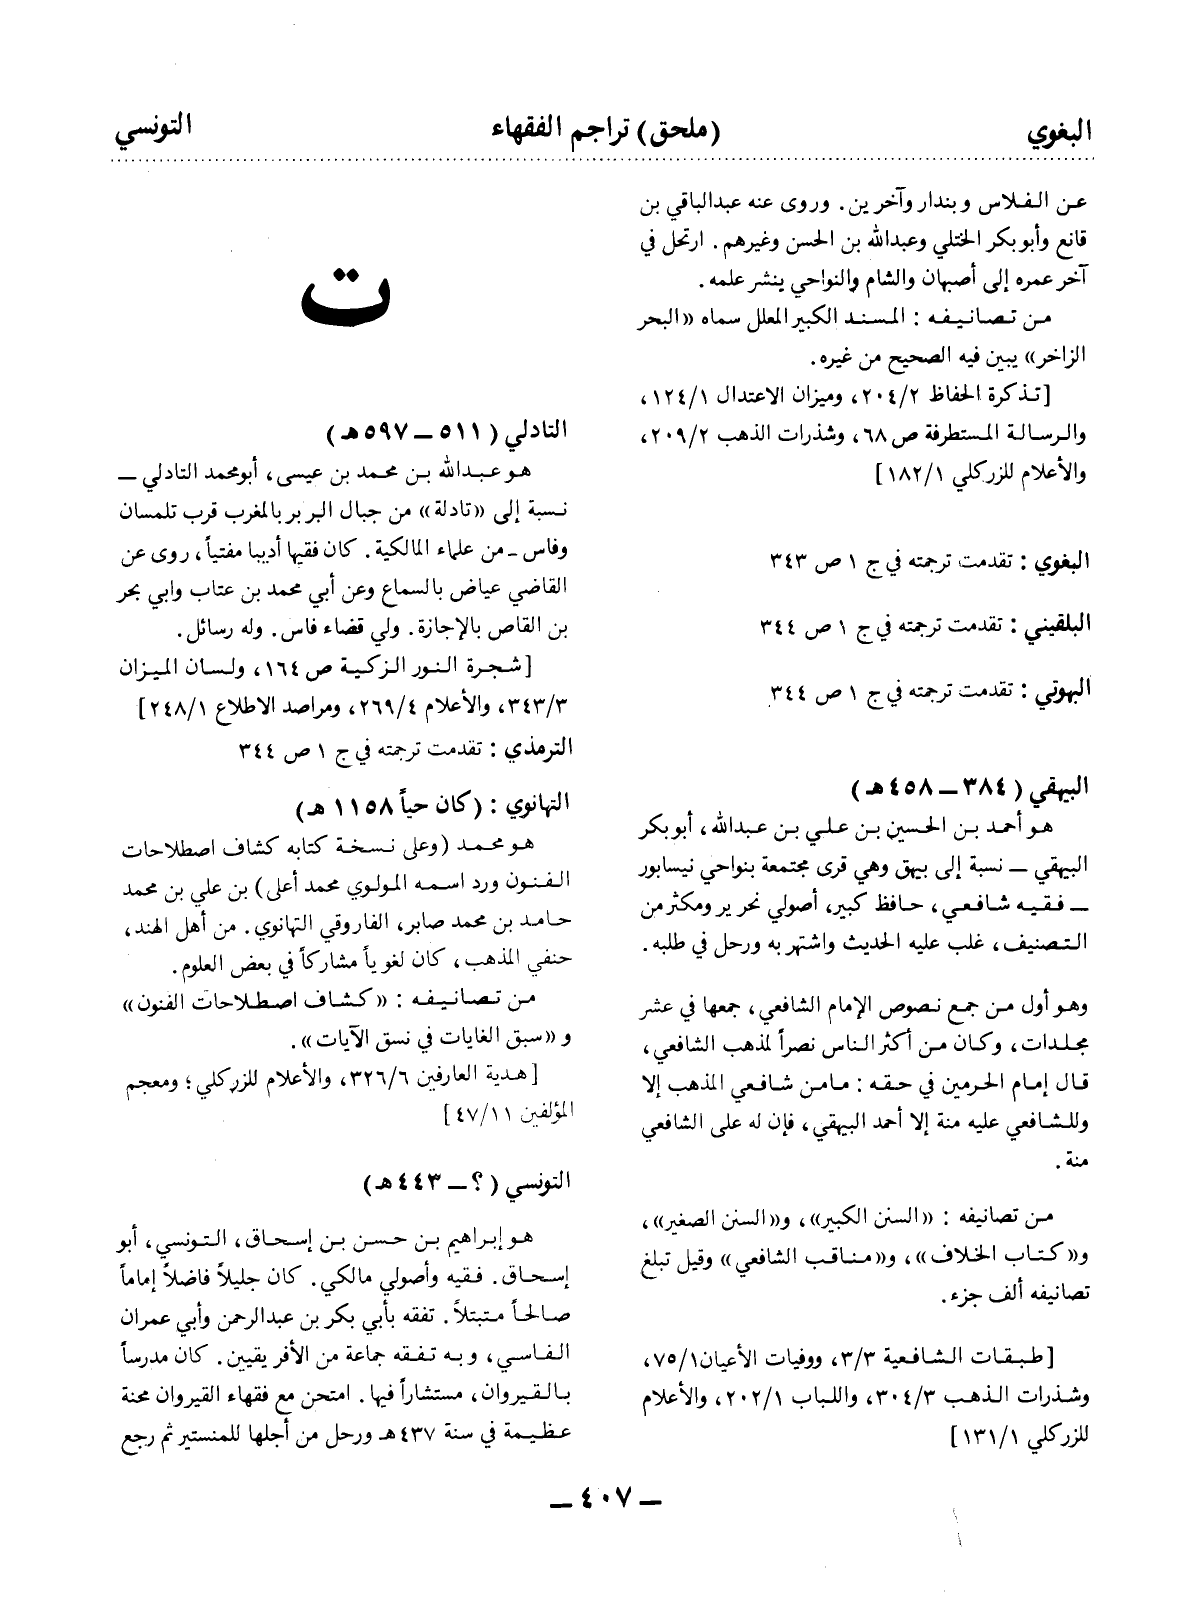 البغوي
(ملحق) تراجم الفقهاء
التونسي
عن الفلاس وبندار وآخرين. وروى عنه عبدالباقي بن
قانع وأبوبكر الختلي وعبدالله بن الحسن وغيرهم. ارتحل في
آخر عمره إلى أصبهان والشام والنواحي ينشر علمه.
من تصانيفه : المسند الكبير المعلل سماه «البحر
الزاخر» يبين فيه الصحيح من غيره.
[تذكرة الحفاظ ٢٠٤/٢، وميزان الاعتدال ١٢٤/١،
والرسالة المستطرفة ص٦٨، وشذرات الذهب ٢٠٩/٢،
والأعلام للزركلي ١٨٢/١]
البغوي : تقدمت ترجمته في ج ١ ص ٣٤٣
البلقيني : تقدمت ترجمته في ج ١ ص ٣٤٤
البهوتي : تقدمت ترجمته في ج ١ ص ٣٤٤
البيهقي (٣٨٤ ــ ٤٥٨هـ)
هو أحمد بن الحسين بن علي بن عبدالله، أبوبكر
البيهقي ــ نسبة إلى بيهق وهي قرى مجتمعة بنواحي نيسابور
ــ فقيه شافعي، حافظ كبير، أصولي نحرير ومكثر من
التصنيف، غلب عليه الحديث واشتهر به ورحل في طلبه.
وهو أول من جمع نصوص الإمام الشافعي، جمعها في عشر
مجلدات، وكان من أكثر الناس نصراً لمذهب الشافعي،
قال إمام الحرمين في حقه : مامن شافعي المذهب إلا
وللشافعي عليه منة إلا أحمد البيهقي، فإن له على الشافعي
منة.
من تصانيفه : «السنن الكبير»، و«السنن الصغير»،
و«كتاب الخلاف»، و«مناقب الشافعي» وقيل تبلغ
تصانيفه ألف جزء.
[طبقات الشافعية ٣/٣، ووفيات الأعيان٧٥/١،
وشذرات الذهب ٣٠٤/٣، واللباب ٢٠٢/١، والأعلام
للزركلي ١٣١/١]
ت
التادلي (٥١١ ــ ٥٩٧هـ)
هو عبدالله بن محمد بن عيسى، أبومحمد التادلي ــ
نسبة إلى «تادلة» من جبال البربر بالمغرب قرب تلمسان
وفاس ـ من علماء المالكية. كان فقيها أديبا مفتياً، روى عن
القاضي عياض بالسماع وعن أبي محمد بن عتاب وابي بحر
بن القاص بالإجازة. ولي قضاء فاس. وله رسائل.
[شجرة النور الزكية ص١٦٤، ولسان الميزان
٣٤٣/٣، والأعلام ٢٦٩/٤، ومراصد الاطلاع ٢٤٨/١]
الترمذي : تقدمت ترجمته في ج ١ ص ٣٤٤
التهانوي : (كان حياً ١١٥٨ هـ)
هو محمد (وعلى نسخة كتابه كشاف اصطلاحات
الفنون ورد اسمه المولوي محمد أعلى) بن علي بن محمد
حامد بن محمد صابر، الفاروقي التهانوي. من أهل الهند،
حنفي المذهب، كان لغوياً مشاركاً في بعض العلوم.
من تصانيفه : «كشاف اصطلاحات الفنون»
و«سبق الغايات في نسق الآيات».
[هدية العارفين ٣٢٦/٦، والأعلام للزركلي؛ ومعجم
المؤلفين ٤٧/١١]
التونسي (؟ ــ ٤٤٣هـ)
هو إبراهيم بن حسن بن إسحاق، التونسي، أبو
إسحاق. فقيه وأصولي مالكي. كان جليلاً فاضلاً إماماً
صالحاً متبتلاً. تفقه بأبي بكر بن عبدالرحمن وأبي عمران
الفاسي، وبه تفقه جماعة من الأفريقيين. كان مدرساً
بالقيروان، مستشاراً فيها. امتحن مع فقهاء القيروان محنة
عظيمة في سنة ٤٣٧هـ ورحل من أجلها للمنستير ثم رجع
ــ ٤٠٧ ــ